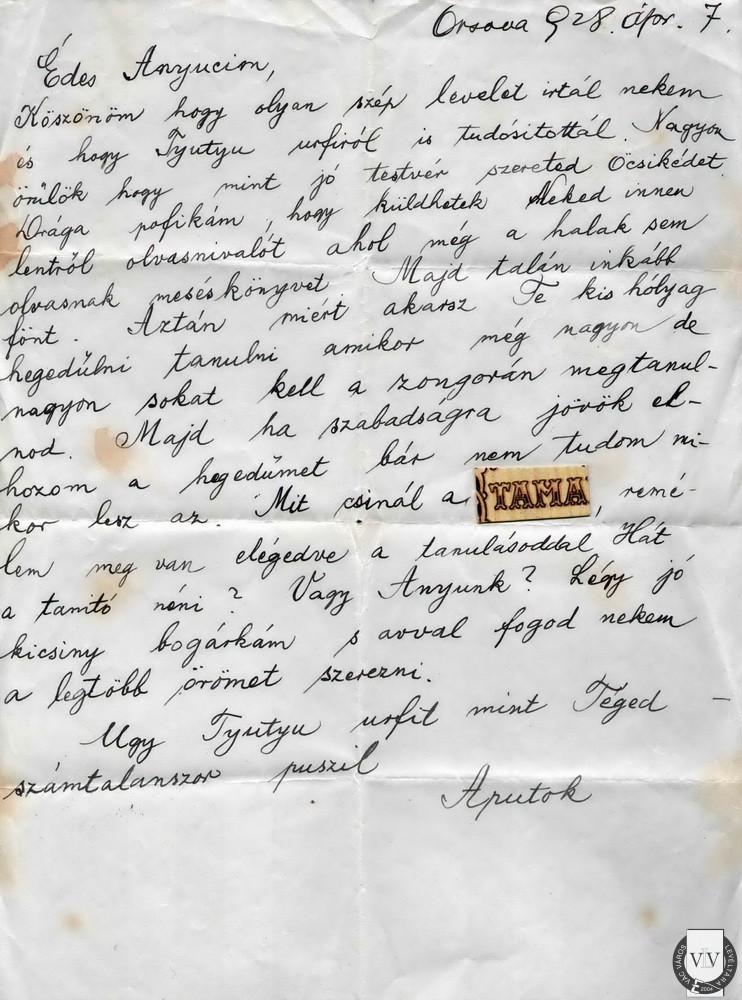 Orsova 928. ápr. 7.
Édes Anyucim,
Köszönöm hogy olyan szép levelet irtál nekem
és hogy Tyutyu urfiról is tudósitottál. Nagyon
örülök hogy mint jó testvér szereted Öcsikédet.
Drága pofikám, hogy küldhetek Neked innen
lentről olvasnivalót ahol még a halak sem
olvasnak meséskönyvet. Majd talán inkább
fönt. Aztán miért akarsz Te kis hólyag
hegedűlni tanulni amikor még nagyon de
nagyon sokat kell a zongorán megtanul-
nod. Majd ha szabadságra jövök el-
hozom a hegedűmet bár nem tudom mi-
kor lesz az. Mit csinál a TAMA, remé-
lem meg van elégedve a tanulásoddal Hát
a tanitó néni? Vagy Anyunk? Légy jó
kicsiny bogárkám s avval fogod nekem
a legtöbb örömet szerezni.
Ugy Tyutyu urfit mint Téged –
számtalanszor puszil
Aputok
VÁC VÁROS LEVÉLTÁRA
VVL
2004